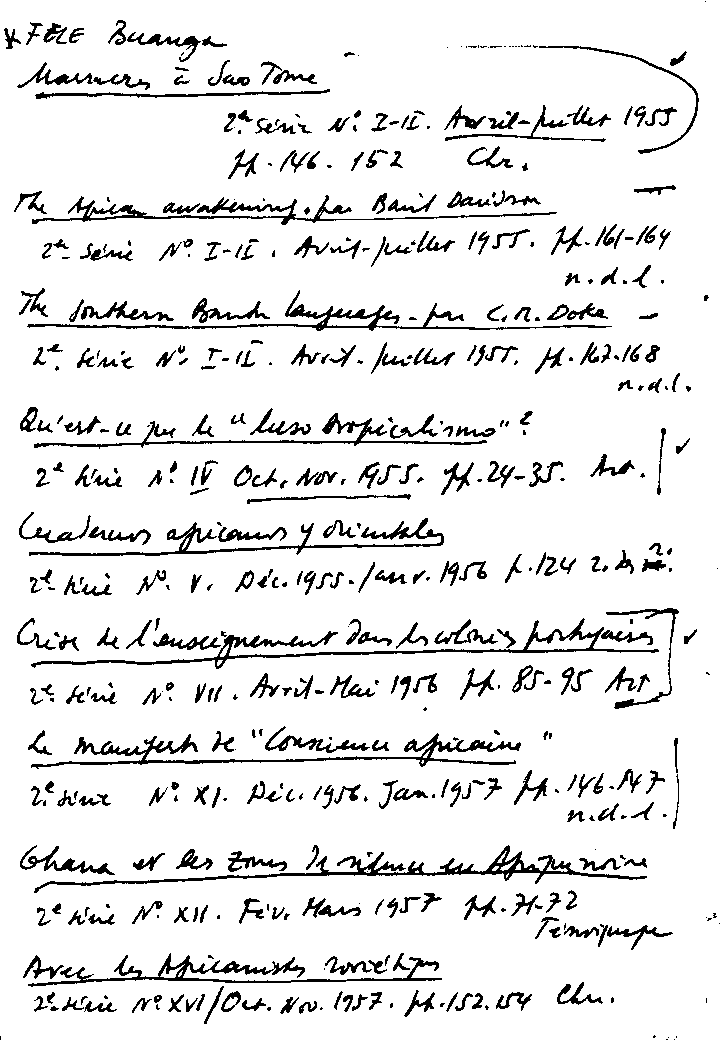 * FELE Buanga
Massacres à Sao Tome
2e série Nº I-II. Avril-juillet 1955
pp. 146. 152 Chr.
The African awakening. par Basil Davidson
2e série Nº I-II. Avril-juillet 1955. pp. 161-164
n.d.l.
The Southern Bantu languages - par C.M. Doke
2e série Nº I-II. Avril-juillet 1955. pp. 167-168
n.d.l.
Qu'est-ce que le "luso tropicalismo"?
2e série Nº IV Oct. Nov. 1955. pp. 24-35. Art.
Cuadernos africanos y orientales
2e série Nº V. Déc. 1955. Janv. 1956 p. 124
Crise de l'enseignement dans les colonies portugaises
2e série Nº VII. Avril-Mai 1956 pp. 85-95 Art
Le manifeste de "Conscience africaine"
2e série Nº XI. Déc. 1956. Jan. 1957 pp. 146.147
n.d.l.
Ghana et les zones de silence en Afrique noire
2e série Nº XII. Fév. Mars 1957 pp. 71-72
Témoignage
Avec les Africanistes soviétiques
2e série Nº XVI/Oct. Nov. 1957. pp. 152.154 Chr.